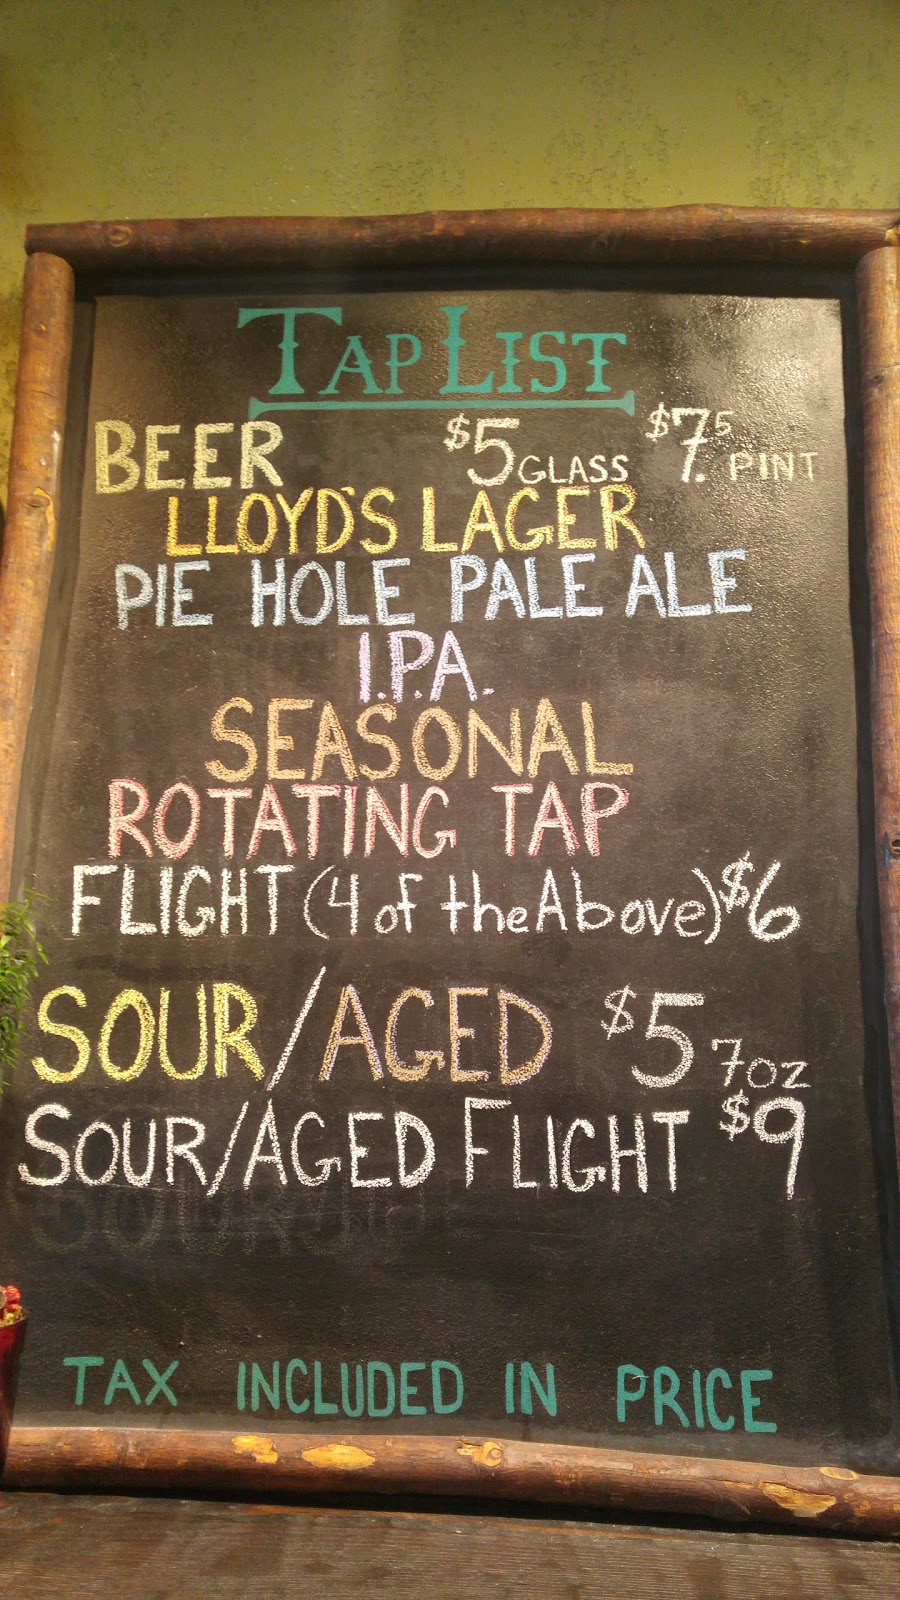 TAP LIST
BEER $5 GLASS $7.5 PINT
LLOYD'S LAGER
PIE HOLE PALE ALE
I.P.A.
SEASONAL
ROTATING TAP
FLIGHT (4 of the Above) $6
SOUR/AGED $5 7oz
SOUR/AGED FLIGHT $9
TAX INCLUDED IN PRICE